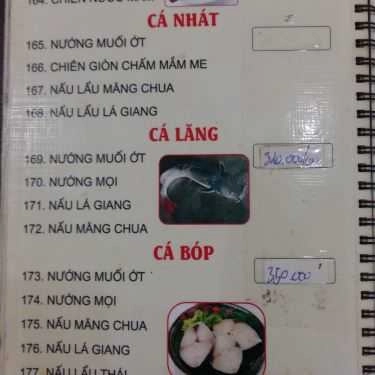 164. CHIÊN NƯỚC MẮM
CÁ NHÁT
165. NƯỚNG MUỐI ỚT
166. CHIÊN GIÒN CHẤM MẮM ME
167. NẤU LẨU MĂNG CHUA
168. NẤU LẨU LÁ GIANG
CÁ LĂNG
169. NƯỚNG MUỐI ỚT
170. NƯỚNG MỌI
171. NẤU LÁ GIANG
172. NẤU MĂNG CHUA
CÁ BÓP
173. NƯỚNG MUỐI ỚT 350.000
174. NƯỚNG MỌI
175. NẤU MĂNG CHUA
176. NẤU LÁ GIANG
177. NẤU LẨU THÁI